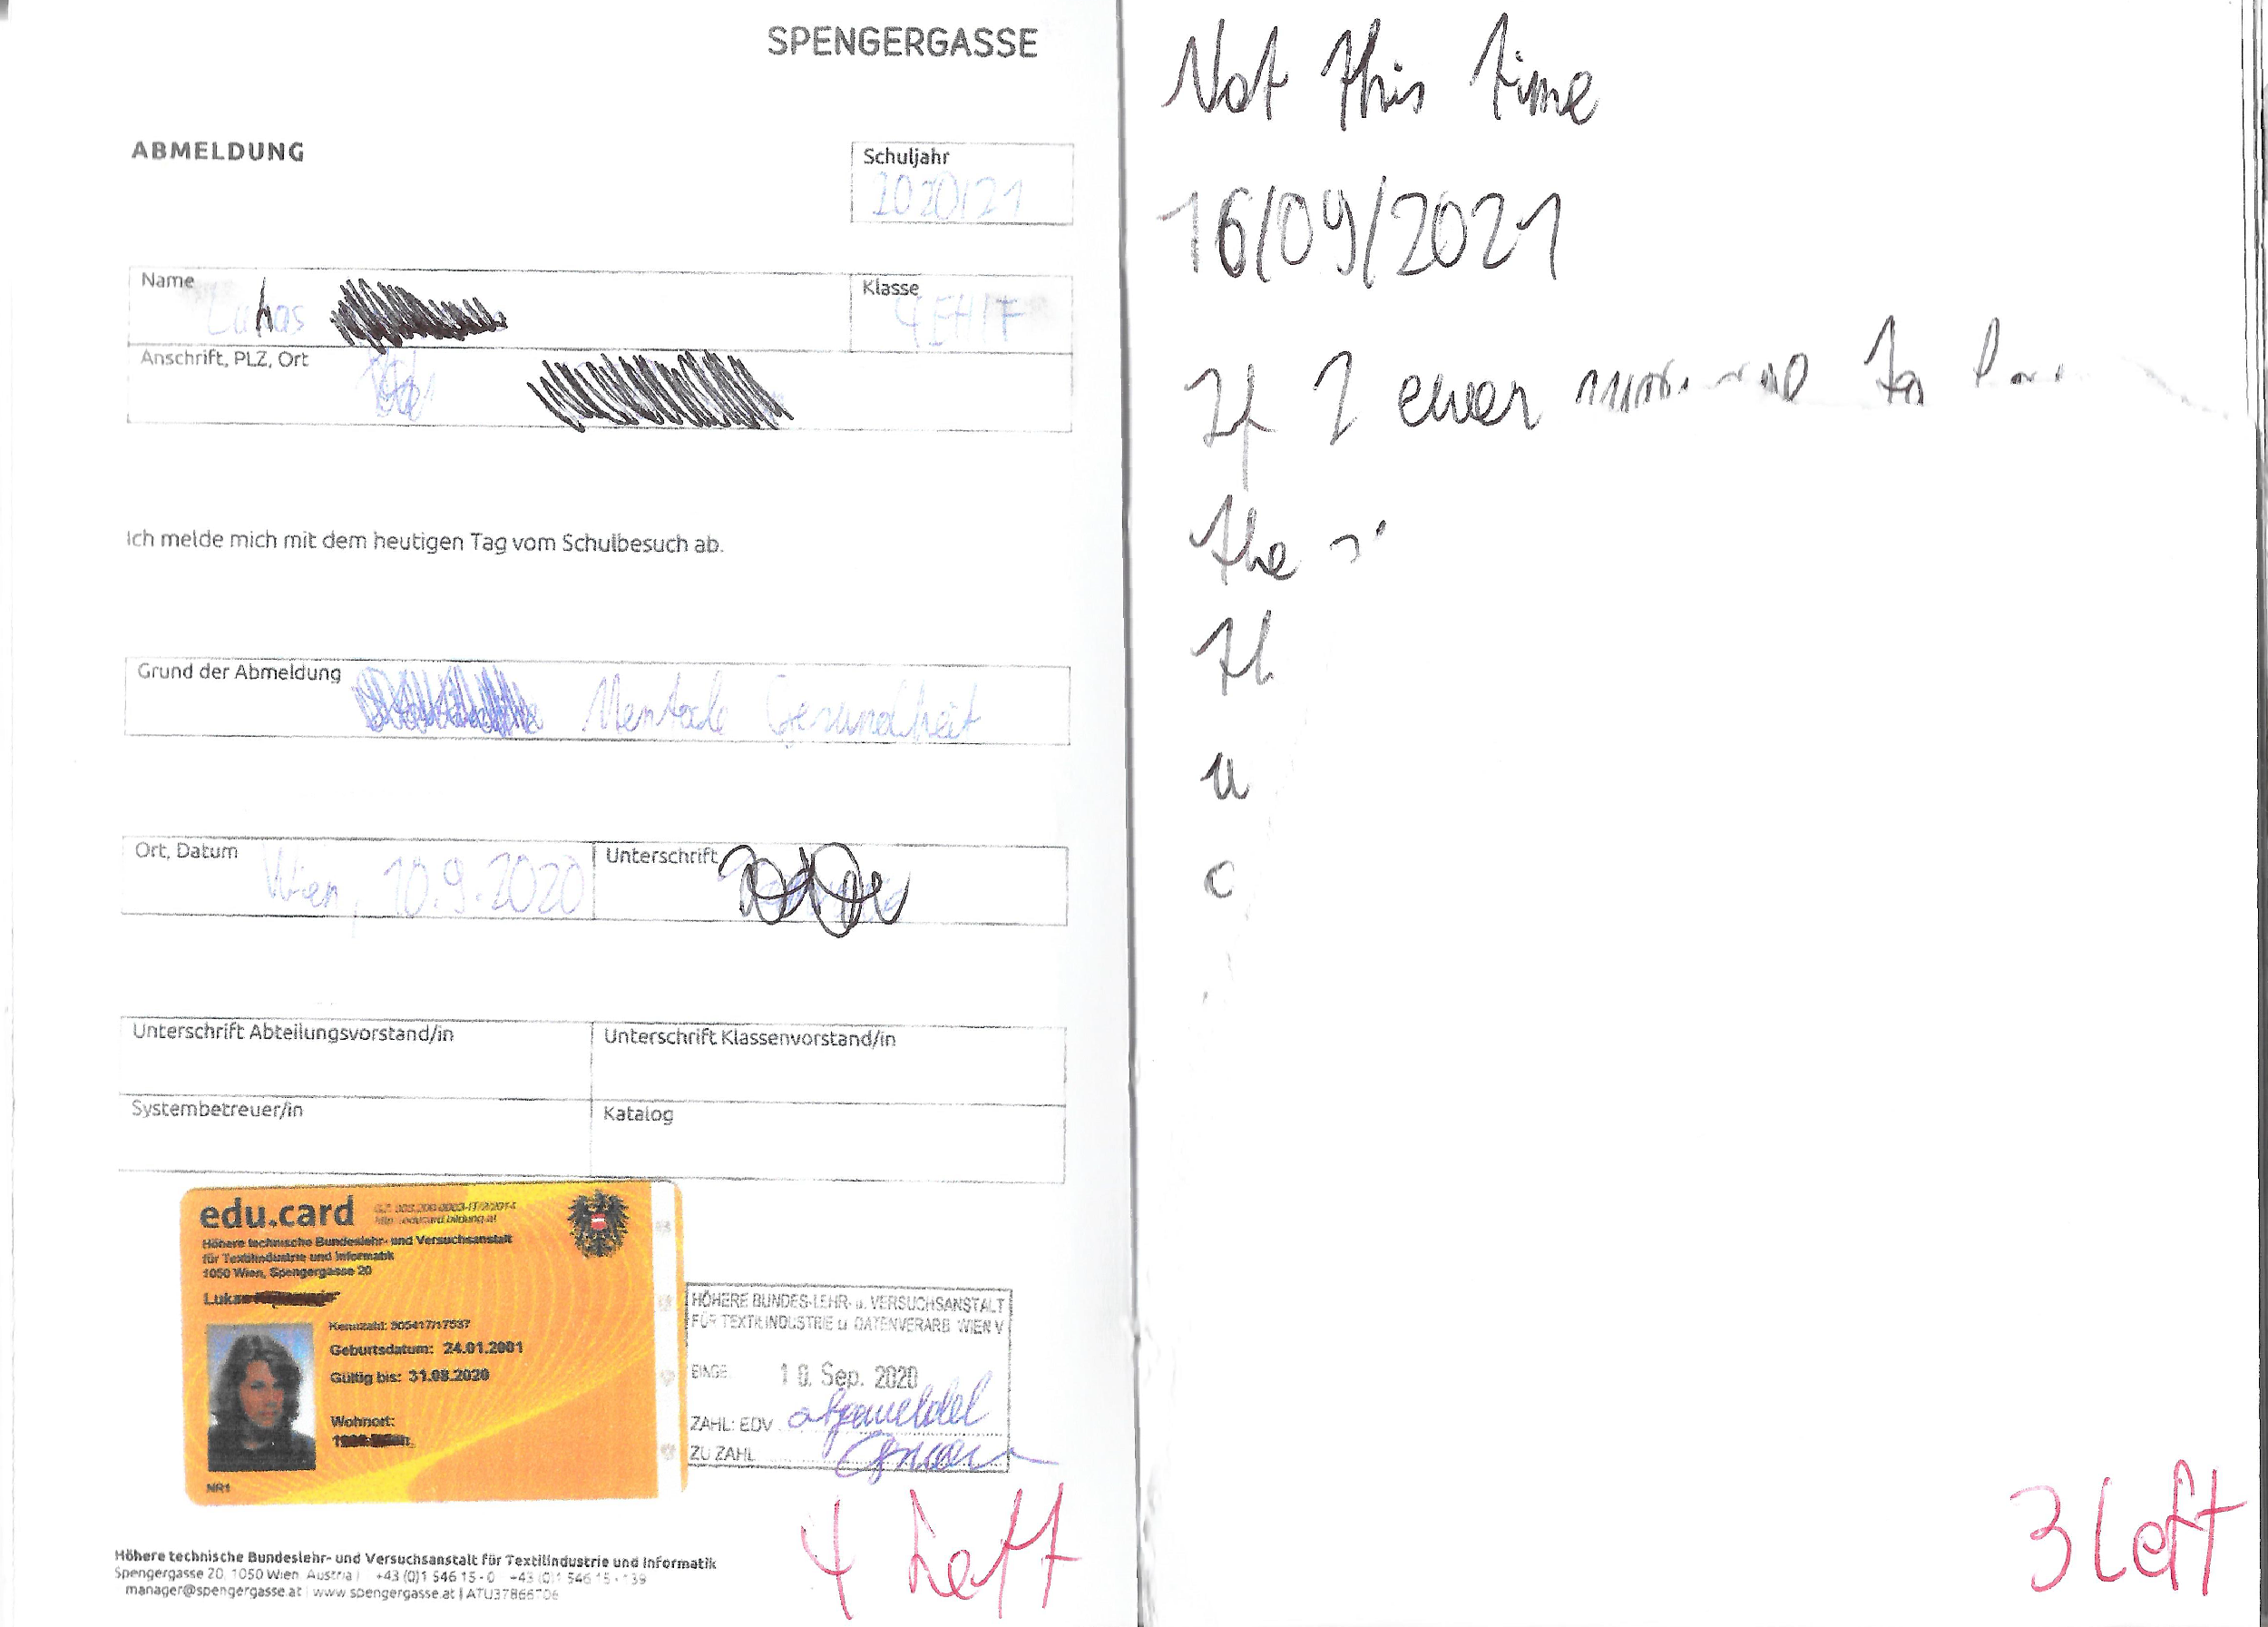 SPENGERGASSE
ABMELDUNG
Schuljahr
2020/21
Name
Lukas
Klasse
4EHIF
Anschrift, PLZ, Ort
Ich melde mich mit dem heutigen Tag vom Schulbesuch ab.
Grund der Abmeldung
Mentale Gesundheit
Ort, Datum
Wien, 10.9.2020
Unterschrift
Unterschrift Abteilungsvorstand/in
Unterschrift Klassenvorstand/in
Systembetreuer/in
Katalog
edu.card
Höhere technische Bundeslehr- und Versuchsanstalt
für Textilindustrie und Informatik
1050 Wien, Spengergasse 20
Lukas
Kennzahl: 905417/17537
Geburtsdatum: 24.01.2001
Gültig bis: 31.08.2020
Wohnort:
NR1
HÖHERE BUNDES-LEHR- u. VERSUCHSANSTALT
FÜR TEXTILINDUSTRIE u DATENVERARB WIEN V
EINGE.
10. Sep. 2020
ZAHL: EDV abgemeldet
ZU ZAHL
4 Left
Höhere technische Bundeslehr- und Versuchsanstalt für Textilindustrie und Informatik
Spengergasse 20, 1050 Wien Austria | +43 (0)1 546 15 - 0 +43 (0)1 546 15 - 139
manager@spengergasse.at | www.spengergasse.at |
Not this time
16/09/2021
If I ever to
the
3 Left